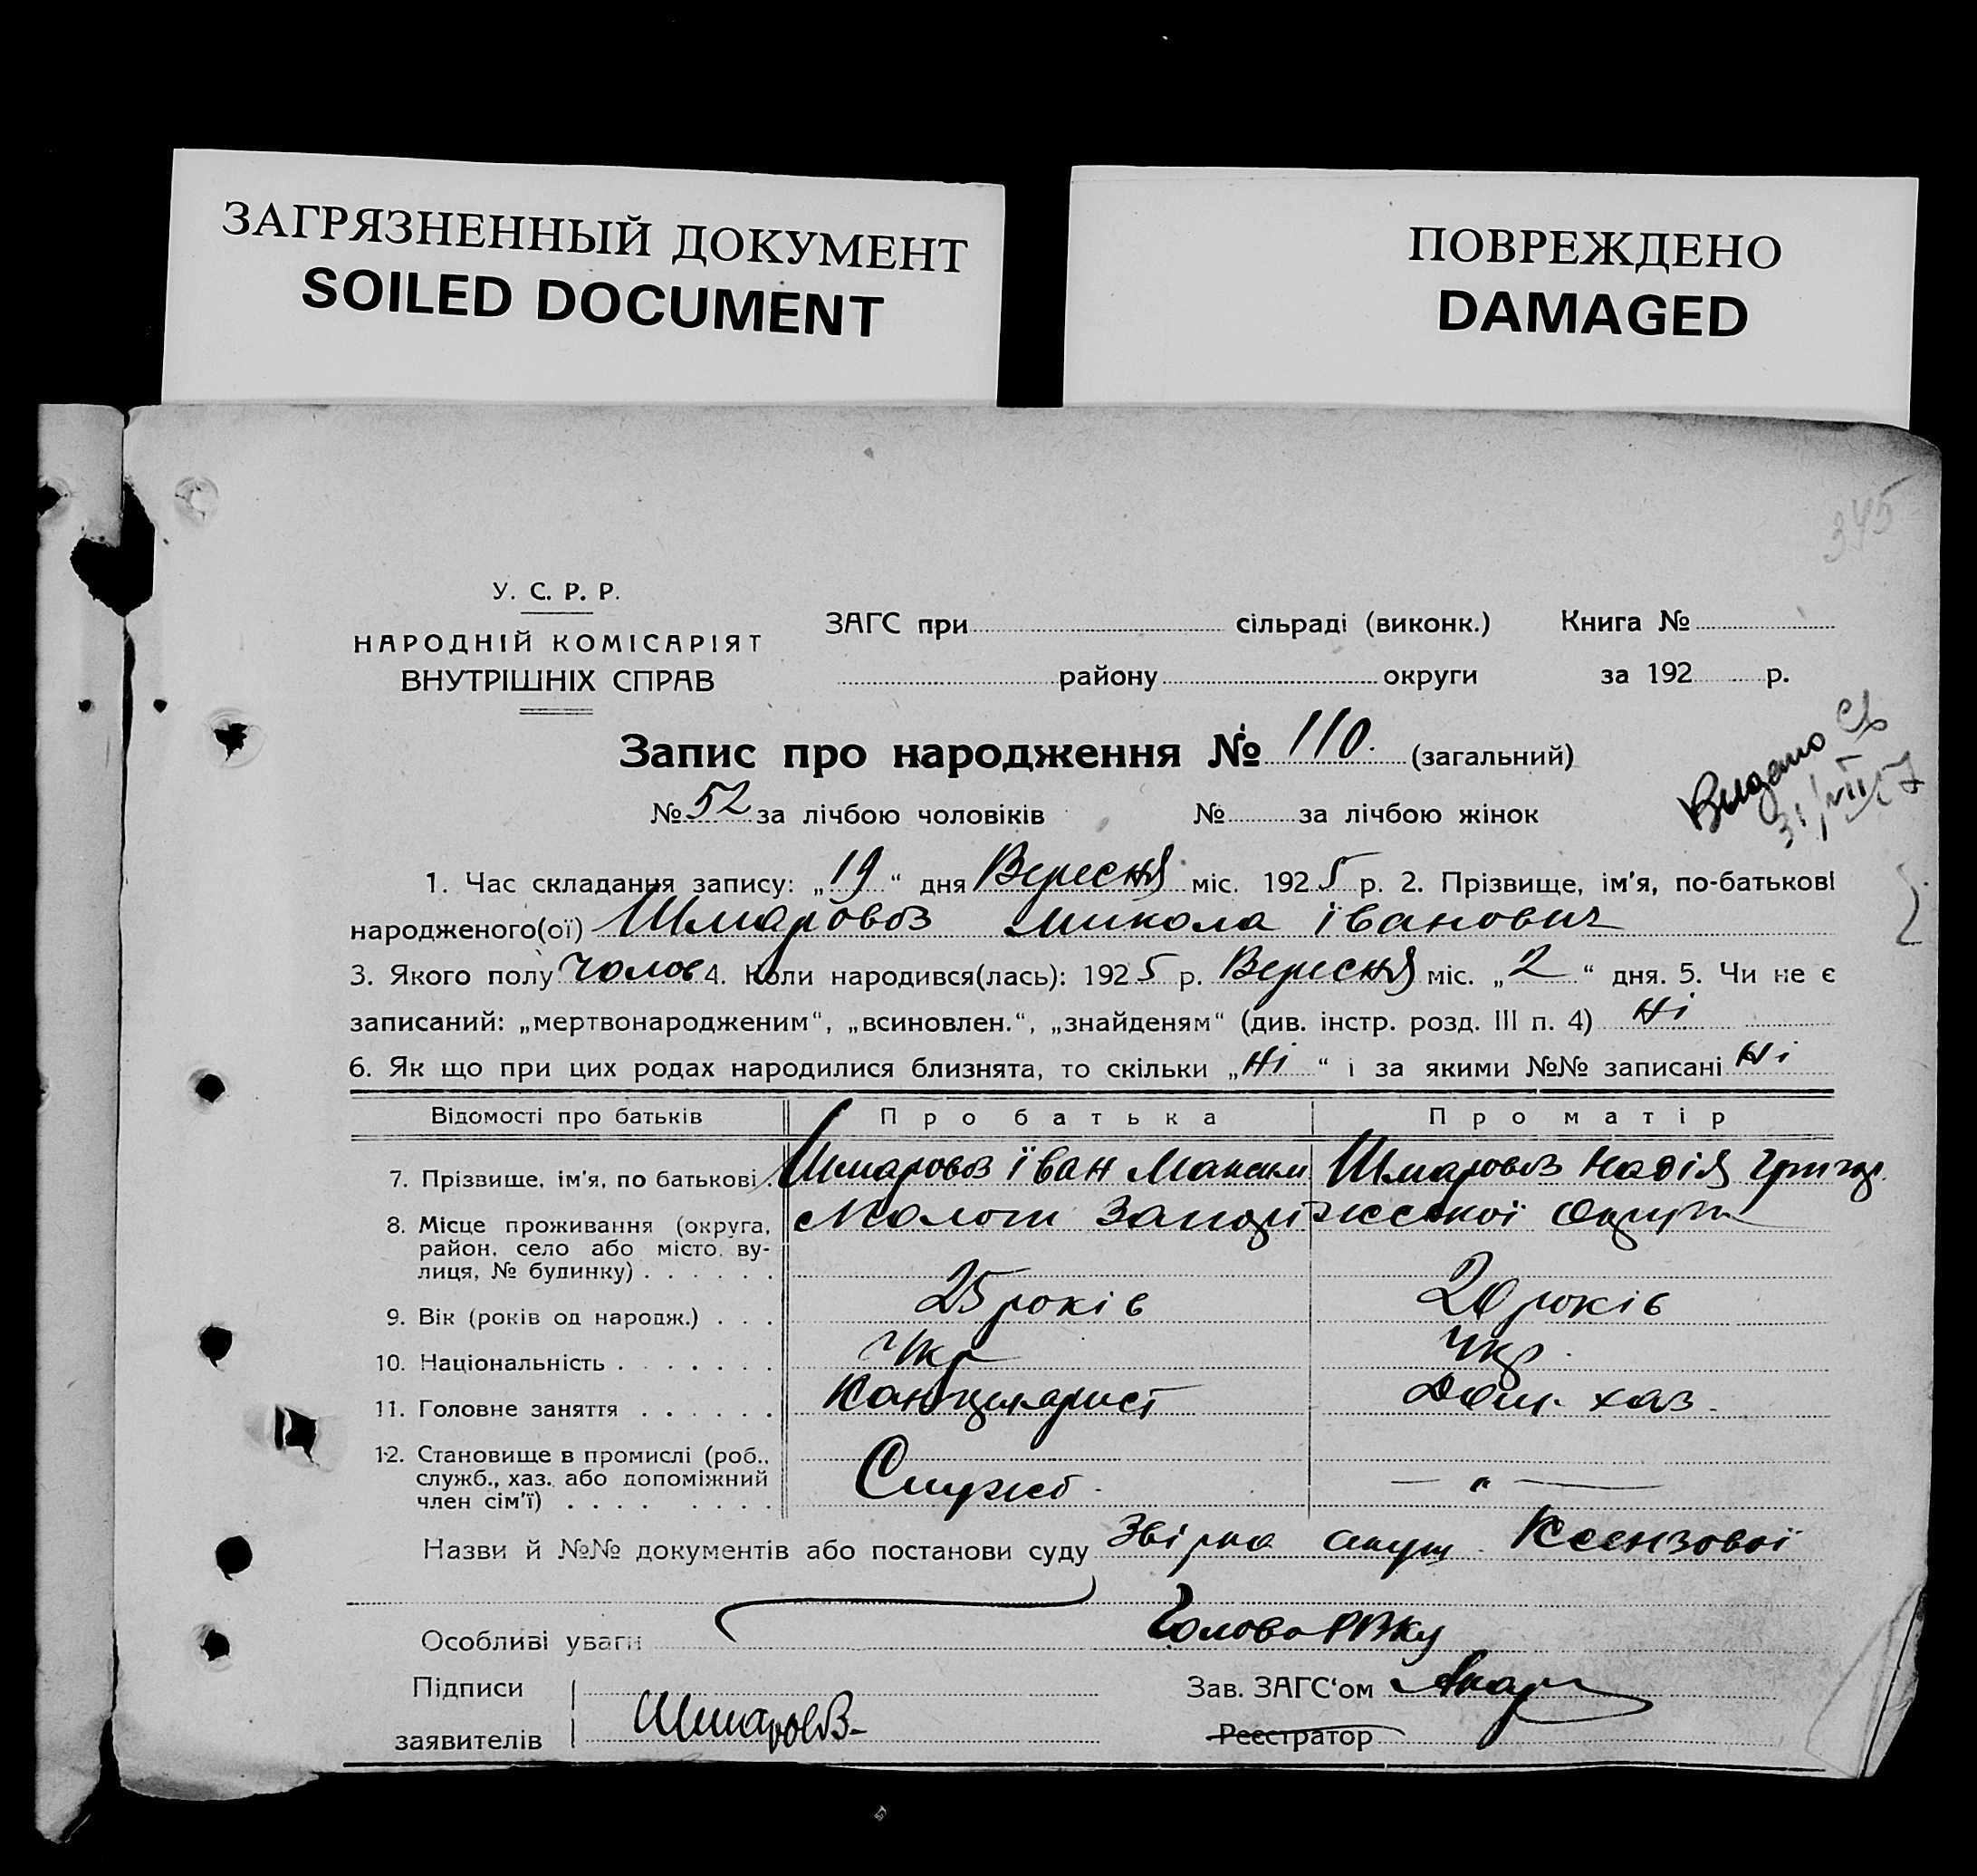 ЗАГРЯЗНЕННЫЙ ДОКУМЕНТ
SOILED DOCUMENT
ПОВРЕЖДЕНО
DAMAGED
345
У. С. Р. Р.
НАРОДНІЙ КОМІСАРІЯТ
ВНУТРІШНІХ СПРАВ
ЗАГС при сільраді (виконк.) Книга №
району округи за 192 р.
Запис про народження № 110. (загальний)
№ 52 за лічбою чоловіків № за лічбою жінок
Видано
31/VII
1. Час складання запису: „19“ дня Вересня міс. 1925 р. 2. Прізвище, ім'я, по-батькові
народженого(ої) Шмаровоз Микола Іванович
3. Якого полу чолов 4. Коли народився(лась): 1925 р. Вересня міс. „2“ дня. 5. Чи не є
записаний: „мертвонародженим“, „всиновлен.“, „знайденям“ (див. інстр. розд. III п. 4) Ні
6. Як що при цих родах народилися близнята, то скільки „Ні“ і за якими №№ записані Ні
Відомості про батьків Про батька Про матір
7. Прізвище, ім'я, по батькові . Шмаровоз Іван Максим Шмаровоз Надія Григор.
8. Місце проживання (округа, Запоріжської Округи
район, село або місто, ву-
лиця, № будинку) . . . . . .
9. Вік (років од народж.) . . . 25 років 20 років
10. Національність . . . . . . . Укр Укр.
11. Головне заняття . . . . . . Канцелярист Дом. хаз.
12. Становище в промислі (роб.,
служб., хаз. або допоміжний Служб. — „ —
член сім'ї) . . . . . . . .
Назви й №№ документів або постанови суду Звірка акуш. Ксензової
Особливі уваги Голова РВКу
Підписи Зав. ЗАГС'ом
заявителів Шмаровоз Реєстратор